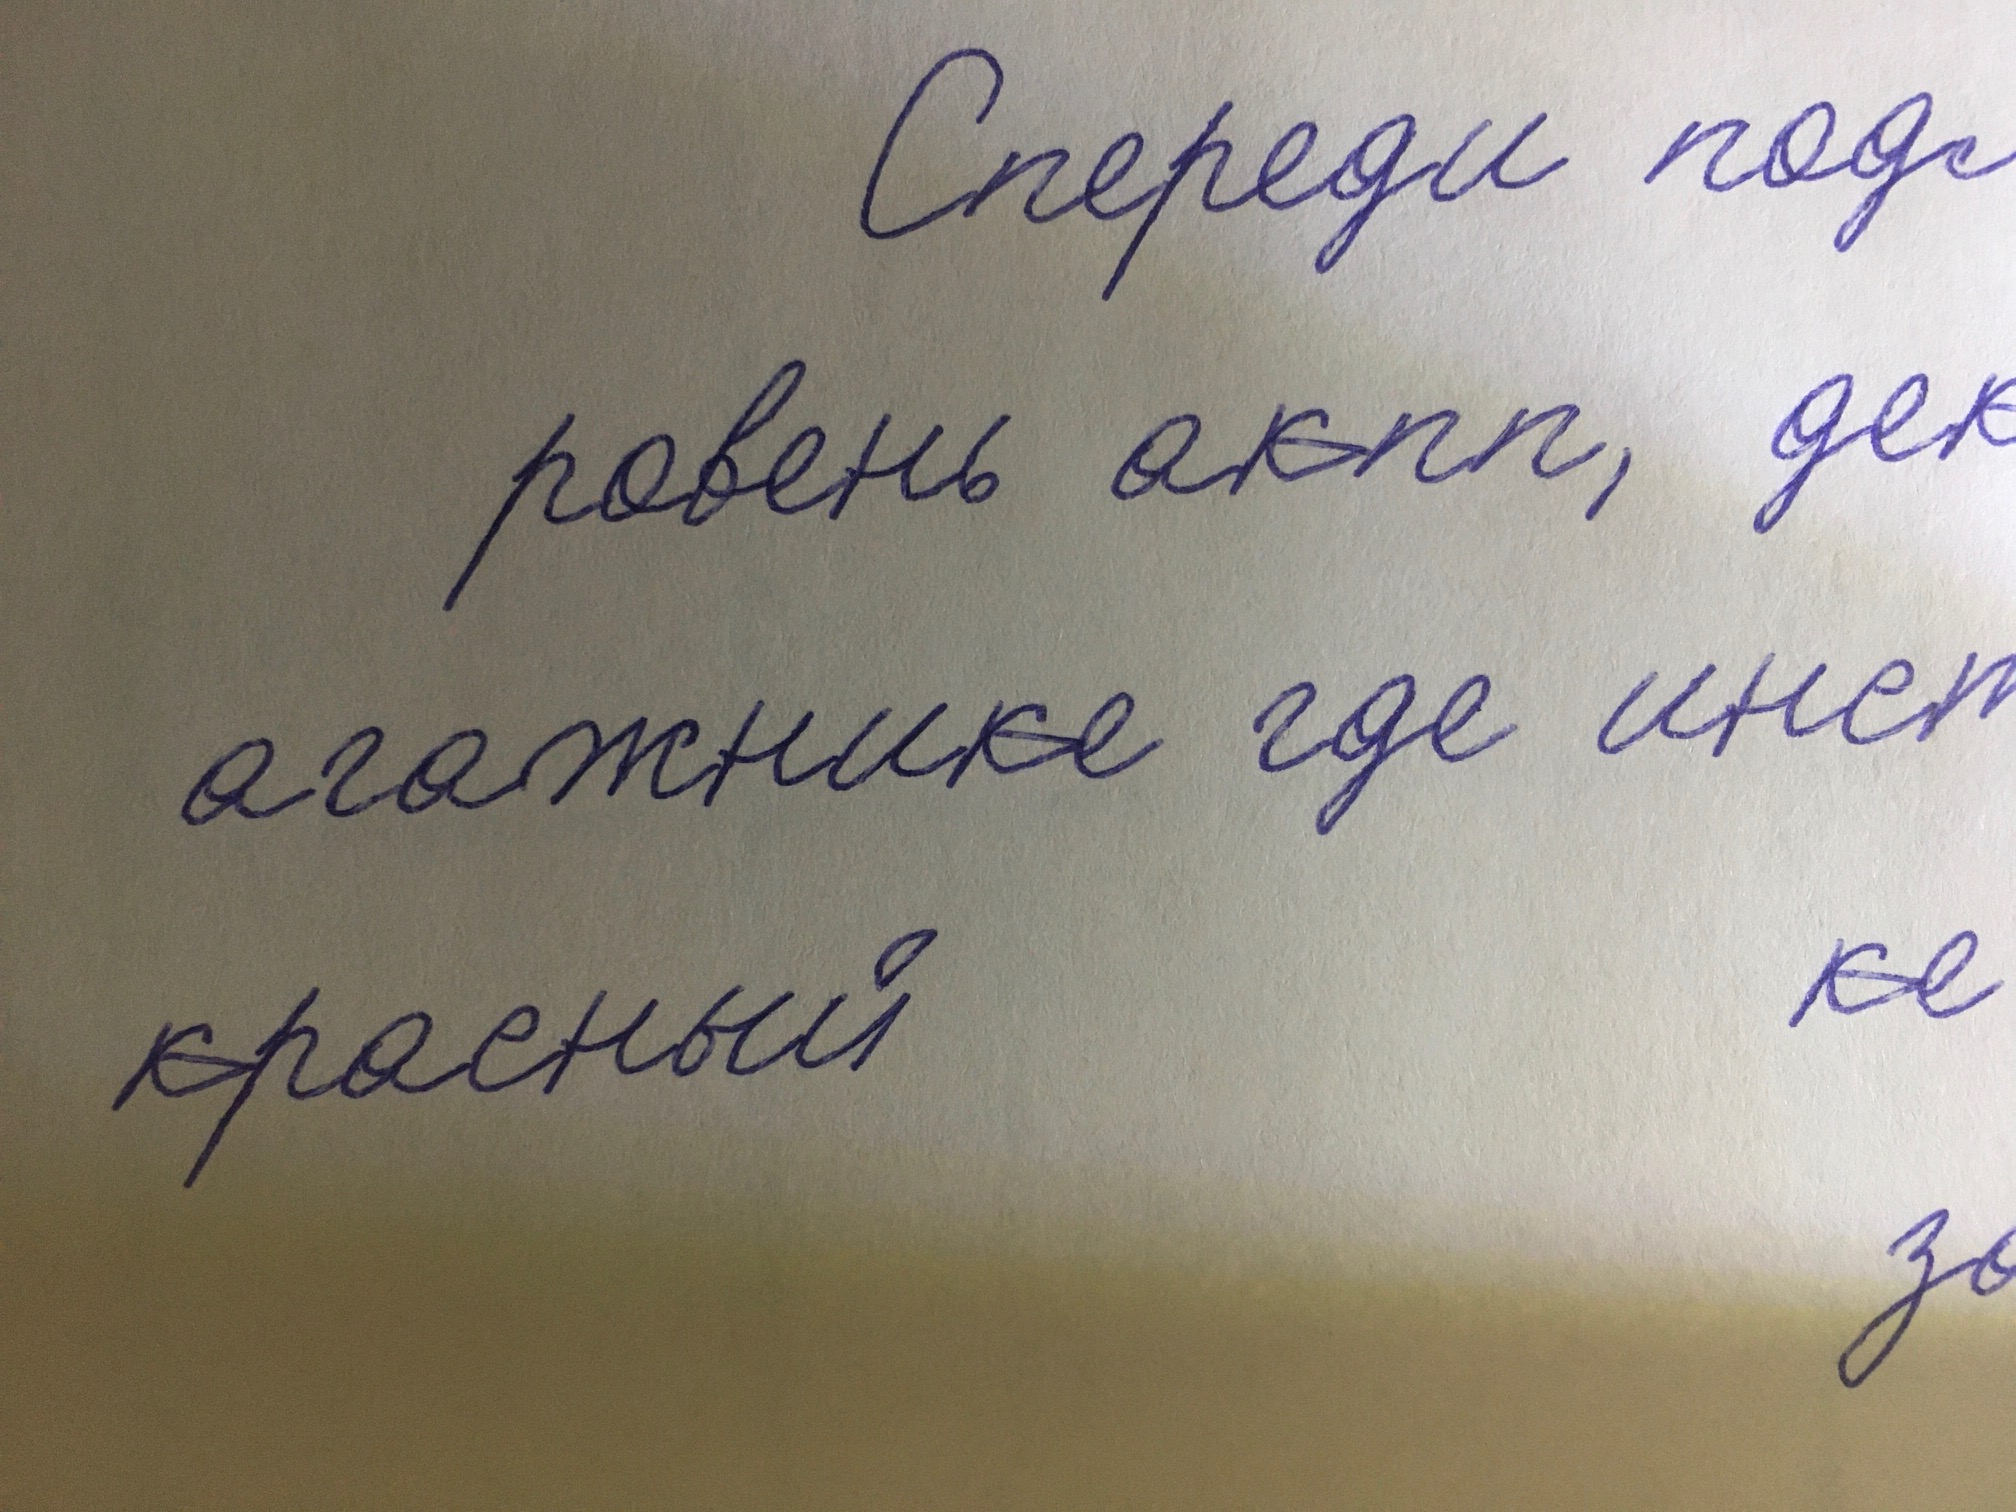 Спереди под
ровень акпп, дек
агажнике где инст
красный ке
за